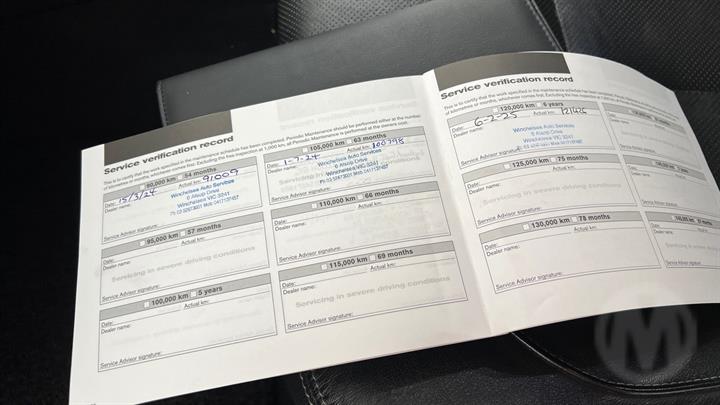 Service verification record
This is to certify that the work specified in the maintenance schedule has been completed. Periodic Maintenance should be performed either at the number
of kilometres or months, whichever comes first. Excluding the free inspection at 1,000 km, all Periodic Maintenance is performed at the owners cost.
90,000 km 54 months
Date: 15/3/24 Actual km: 91009
Dealer name:
Winchelsea Auto Services
6 Alsop Drive
Winchelsea VIC 3241
Service Advisor signature:
95,000 km 57 months
Date: Actual km:
Dealer name:
Servicing in severe driving conditions
Service Advisor signature:
100,000 km 5 years
Date: Actual km:
Dealer name:
Service Advisor signature:
105,000 km 63 months
Date: 1-7-24 Actual km: 100798
Dealer name:
Winchelsea Auto Services
6 Alsop Drive
Winchelsea VIC 3241
Service Advisor signature:
110,000 km 66 months
Date: Actual km:
Dealer name:
Service Advisor signature:
115,000 km 69 months
Date: Actual km:
Dealer name:
Servicing in severe driving conditions
Service Advisor signature:
Service verification record
This is to certify that the work specified in the maintenance schedule has been completed.
of kilometres or months, whichever comes first. Excluding the free inspection at
120,000 km 6 years
Date: 6-2-25 Actual km:
Dealer name:
Winchelsea Auto Services
6 Alsop Drive
Winchelsea VIC 3241
Service Advisor signature:
125,000 km 75 months
Date: Actual km:
Dealer name:
Servicing in severe driving conditions
Service Advisor signature:
130,000 km 78 months
Date: Actual km:
Dealer name:
Service Advisor signature:
M